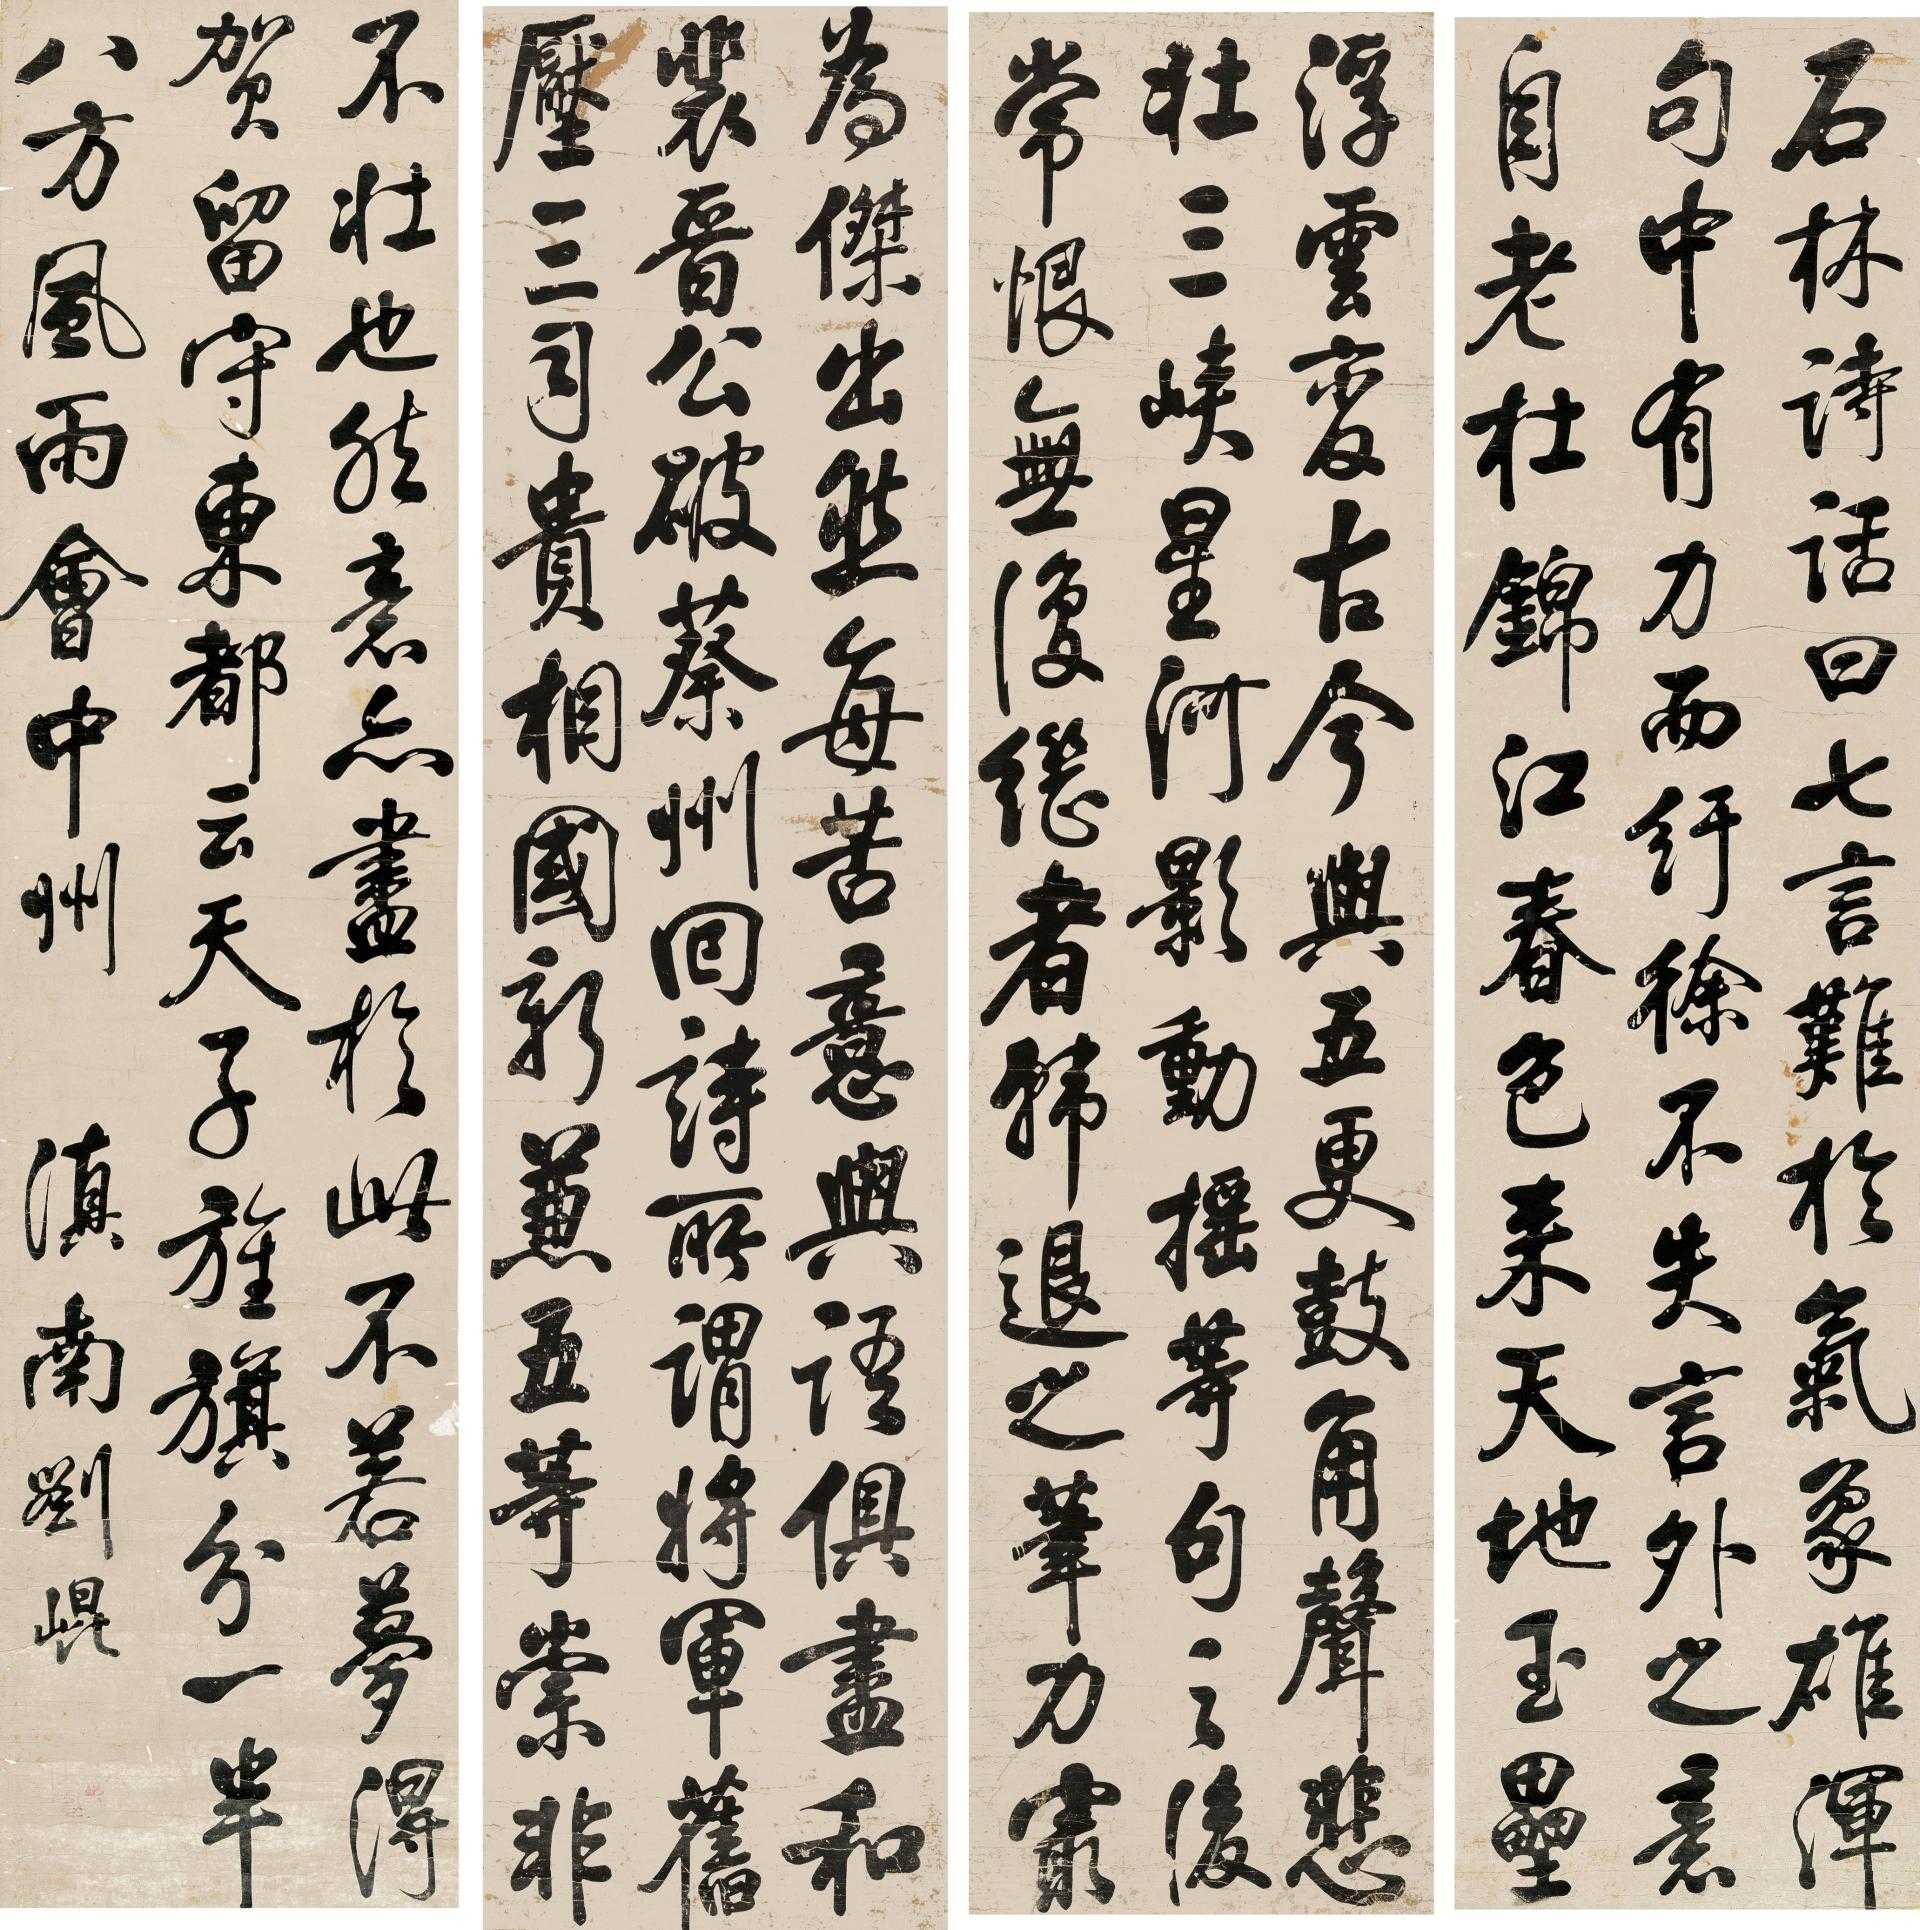 石林詩話曰七言難於氣象雄渾
句中有力而紆徐不失言外之意
自老杜錦江春色来天地玉壘
浮雲變古今與五更鼓角聲悲
壯三峽星河影動摇等句之後
常恨無復繼者韓退之筆力
為傑出然每苦意與語俱盡和
裴晉公破蔡州回詩所謂將軍舊
壓三司貴相國新兼五等崇非
不壯也然意亦盡於此不若夢得
賀留守東都云天子旌旗分一半
八方風雨會中州
滇南劉崐